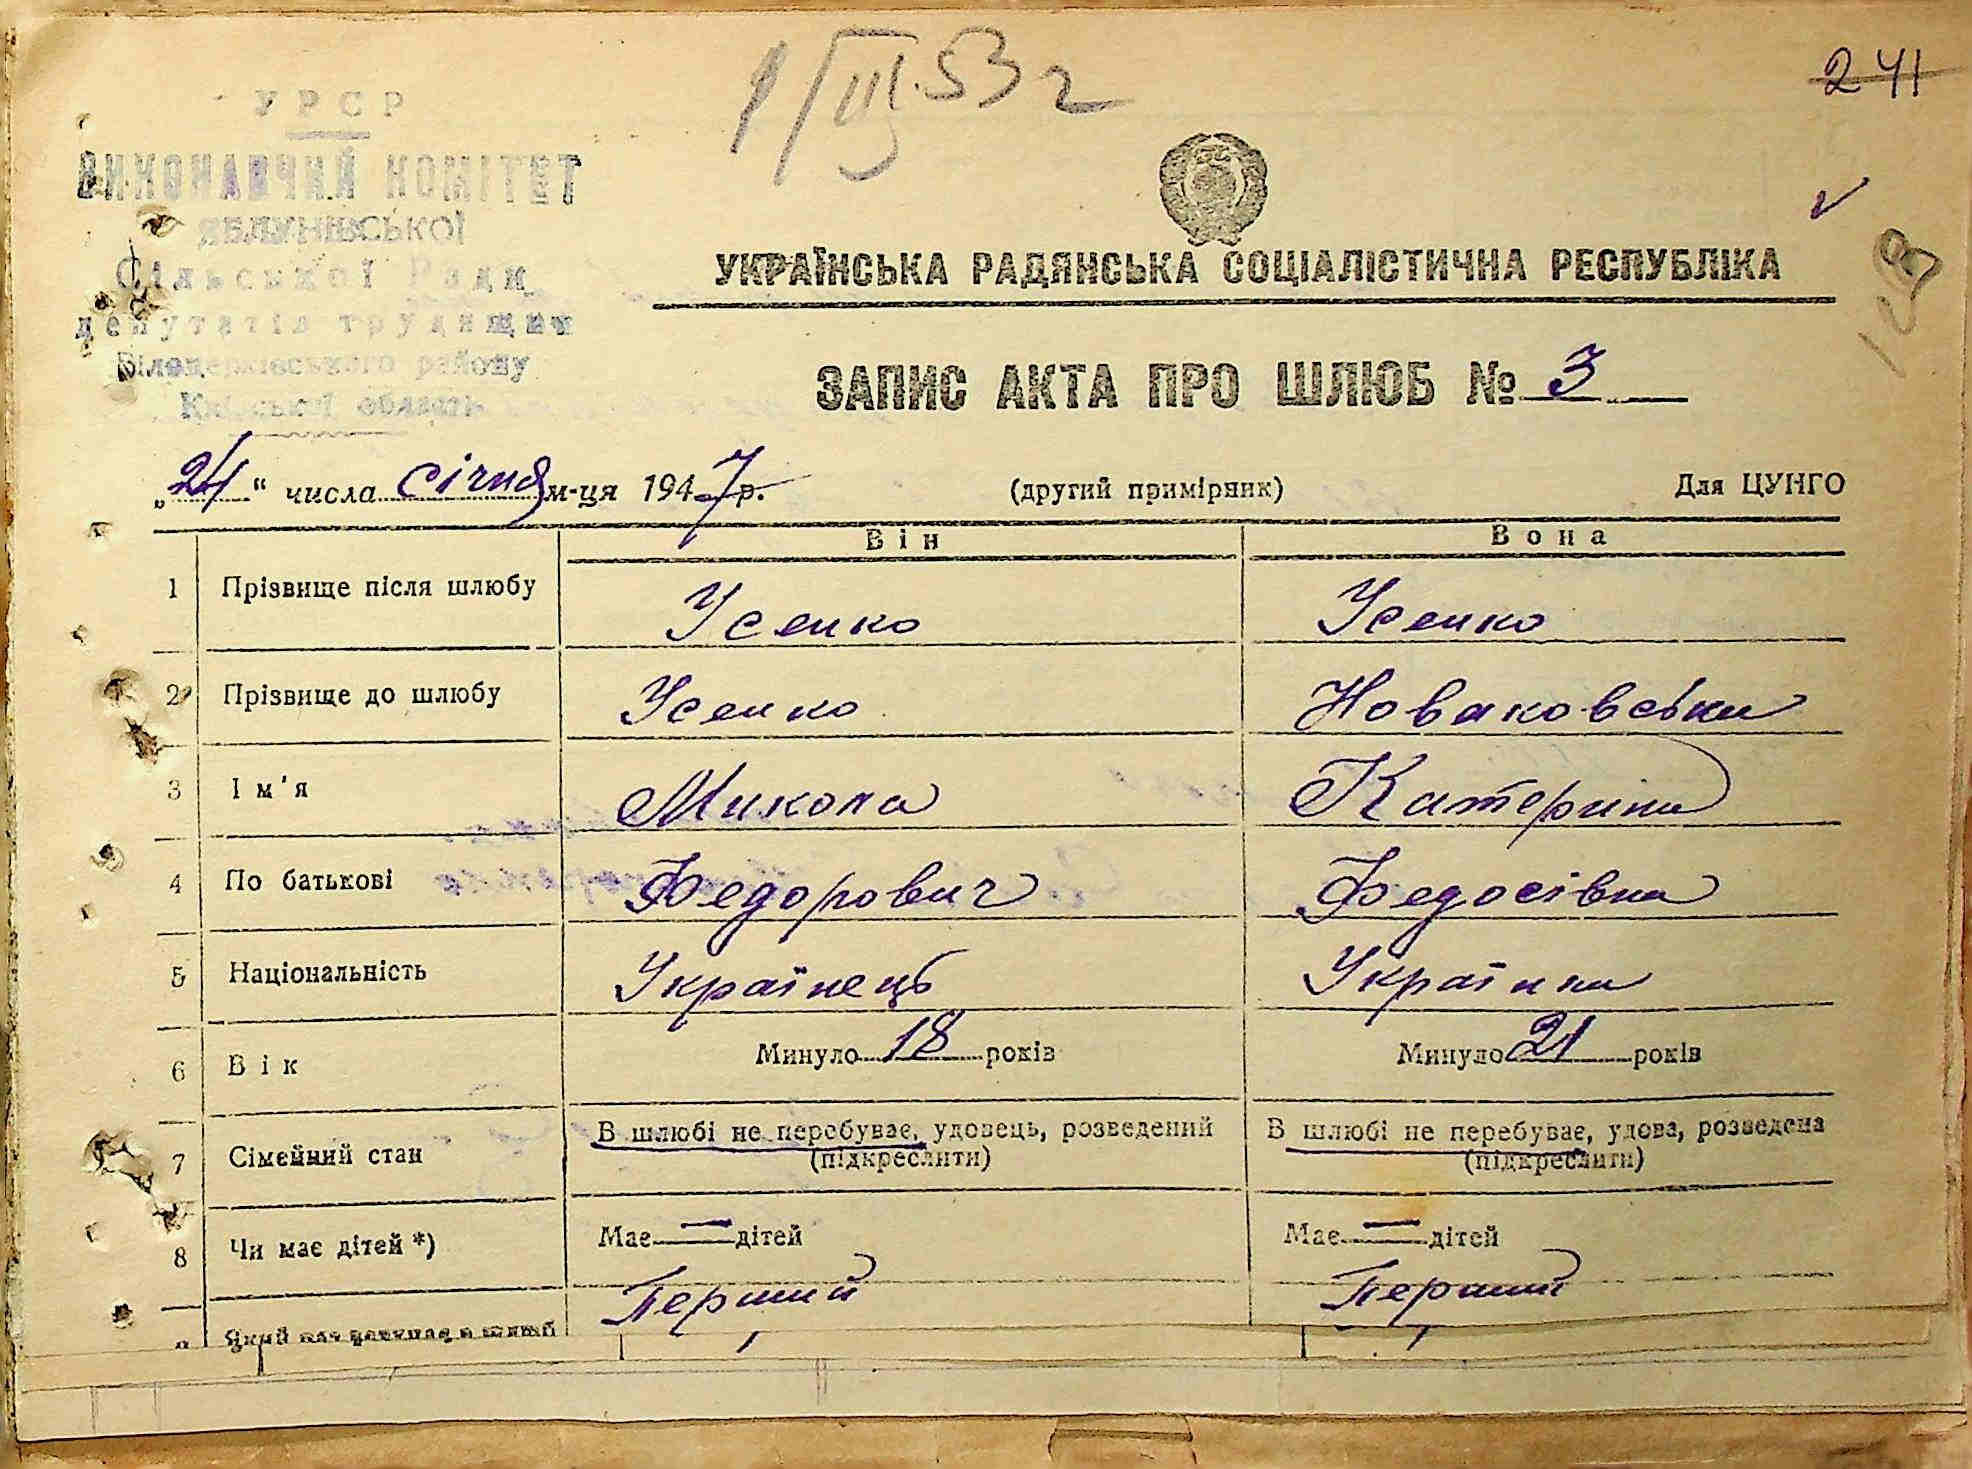 1/III.53 г
241
УРСР
ВИКОНАВЧИЙ КОМІТЕТ
ЯБЛУНІВСЬКОЇ
Сільської Ради
депутатів трудящих
Білоцерківського району
Київської області
УКРАЇНСЬКА РАДЯНСЬКА СОЦІАЛІСТИЧНА РЕСПУБЛІКА
ЗАПИС АКТА ПРО ШЛЮБ № 3
„24“ числа січня м-ця 1947 р. (другий примірник) Для ЦУНГО
Він Вона
1 Прізвище після шлюбу Усенко Усенко
2 Прізвище до шлюбу Усенко Новаковська
3 Ім'я Микола Катерина
4 По батькові Федорович Федосівна
5 Національність Українець Українка
6 Вік Минуло 18 років Минуло 21 років
7 Сімейний стан В шлюбі не перебуває, удовець, розведений (підкреслити) В шлюбі не перебуває, удова, розведена (підкреслити)
8 Чи має дітей *) Має — дітей Має — дітей
Який раз вступає в шлюб Перший Перший